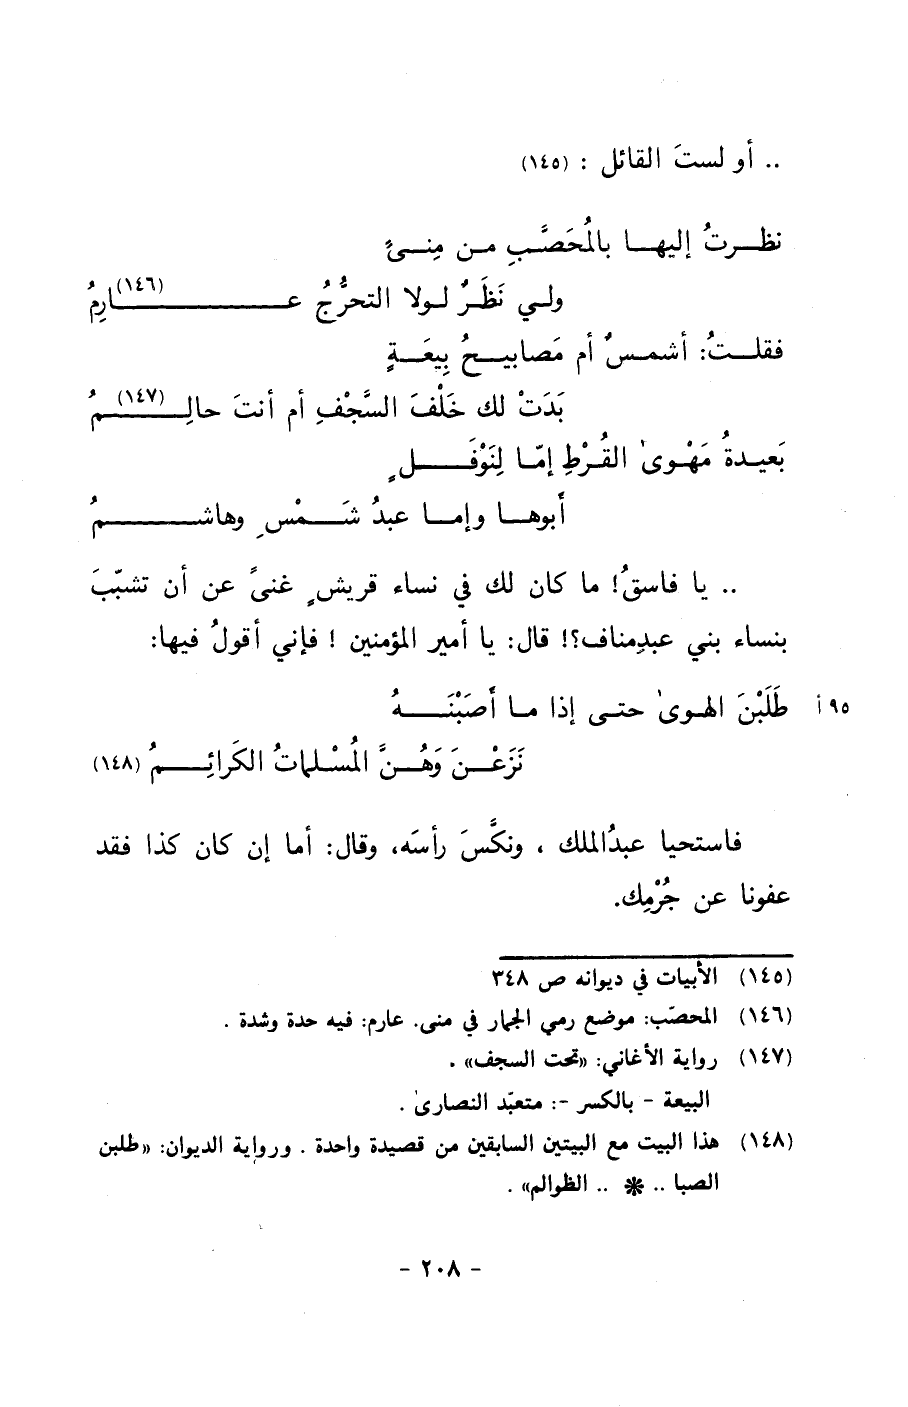 .. أو لستَ القائل : (١٤٥)
نظرتُ إليها بالمُحَصَّبِ من مِنىً
ولي نَظَرٌ لولا التحرُّجُ عارِمُ (١٤٦)
فقلتُ: أشمسٌ أم مَصابيحُ بِيعَةٍ
بَدَتْ لك خَلْفَ السَّجْفِ أم أنتَ حالِمُ (١٤٧)
بَعيدةُ مَهْوىٰ القُرْطِ إمّا لِنَوْفَلٍ
أبوها وإما عبدُ شَمْسٍ وهاشمُ
.. يا فاسقُ! ما كان لك في نساء قريشٍ غنىً عن أن تشبّبَ
بنساء بني عبدِمناف؟! قال: يا أمير المؤمنين ! فإني أقولُ فيها:
طَلَبْنَ الهوىٰ حتى إذا ما أصَبْنَهُ ٩٥ أ
نَزَعْنَ وَهُنَّ المُسْلماتُ الكَرائِمُ (١٤٨)
فاستحيا عبدُالملك ، ونكَّسَ رأسَه، وقال: أما إن كان كذا فقد
عفونا عن جُرْمِك.
(١٤٥) الأبيات في ديوانه ص ٣٤٨
(١٤٦) المحصّب: موضع رمي الجمار في منى. عارم: فيه حدة وشدة .
(١٤٧) رواية الأغاني: «تحت السجف» .
البيعة - بالكسر -: متعبّد النصارىٰ .
(١٤٨) هذا البيت مع البيتين السابقين من قصيدة واحدة . ورواية الديوان: «طلبن
الصبا .. * .. الظوالم» .
- ٢٠٨ -